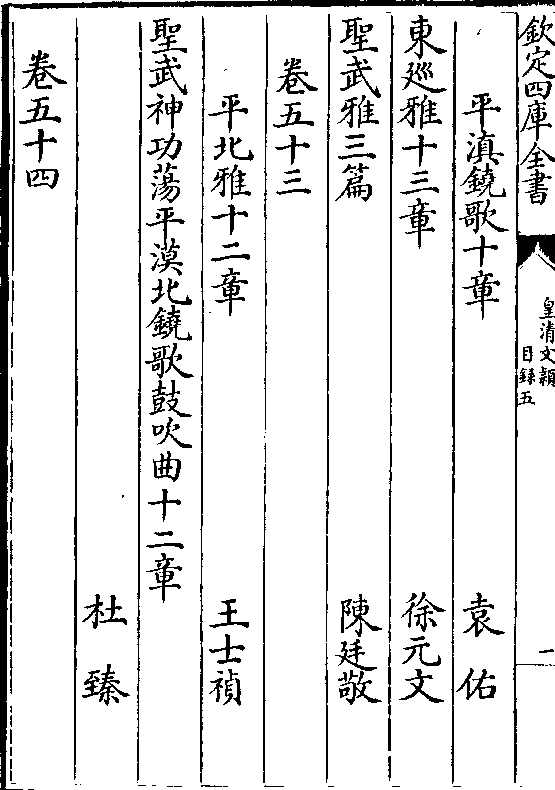 欽定四庫全書
皇清文穎
目錄五
一
平滇鐃歌十章 袁佑
東巡雅十三章 徐元文
聖武雅三篇 陳廷敬
卷五十三
平北雅十二章 王士禎
聖武神功蕩平漠北鐃歌鼓吹曲十二章
杜臻
卷五十四